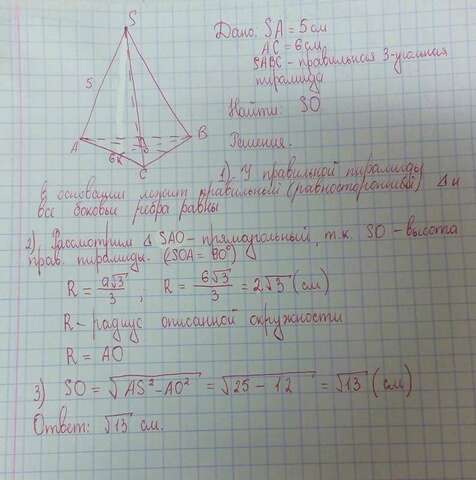 S
5
A
B
6
O
C
Дано: SA = 5 см
AC = 6 см
SABC - правильная 3-угольная
пирамида
Найти: SO
Решение.
1). У правильной пирамиды
в основании лежит правильный (равносторонний) Δ и
все боковые ребра равны
2). Рассмотрим Δ SAO - прямоугольный, т.к. SO - высота
прав. пирамиды. (∠SOA = 90°)
R = a√3/3 , R = 6√3/3 = 2√3 (см)
R - радиус описанной окружности
R = AO
3) SO = √(AS² - AO²) = √(25 - 12) = √13 (см)
Ответ: √13 см.